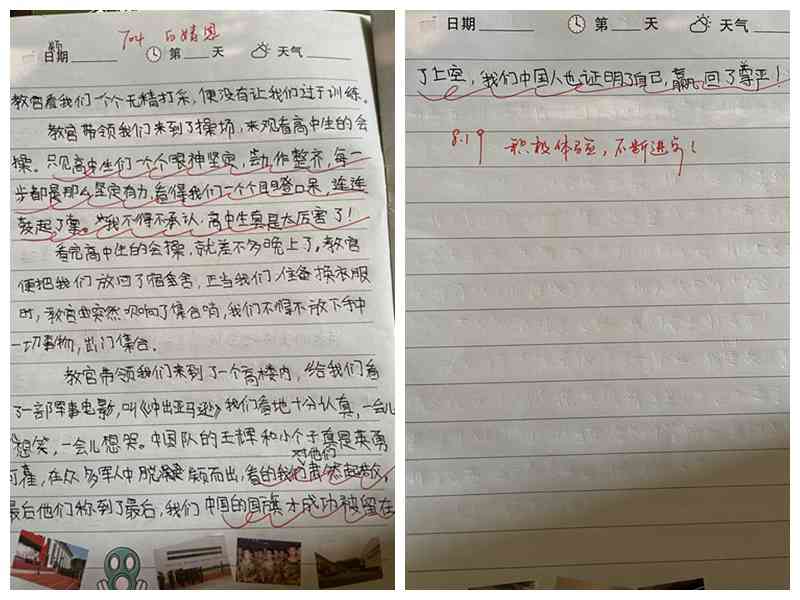 704
日期 第 天 天气
教官看我们一个个无精打采,便没有让我们过于训练。
教官带领我们来到了操场,来观看高中生的会
操。只见高中生们一个个眼神坚定,动作整齐,每一
步都是那么坚定有力,看得我们一个个目瞪口呆,连连
鼓起了掌。我不得不承认,高中生真是太厉害了!
看完高中生的会操,就差不多晚上了。教官
便把我们放回了宿舍,正当我们准备换衣服
时,教官突然吹响了集合哨,我们不得不放下手中
一切事物,出门集合。
教官带领我们来到了一个高楼内,给我们看
了一部军事电影,叫《冲出亚马逊》我们看地十分认真,一会儿
想笑,一会儿想哭。中国队的王辉和小个子真是英勇
对他们
可着,在众多军人中脱颖而出,看的我们肃然起敬,
最后他们称到了最后,我们中国的国旗才成功被留在
日期 第 天 天气
了上空,我们中国人也证明了自己,赢回了尊严!
8.19 积极体验,不断进步!